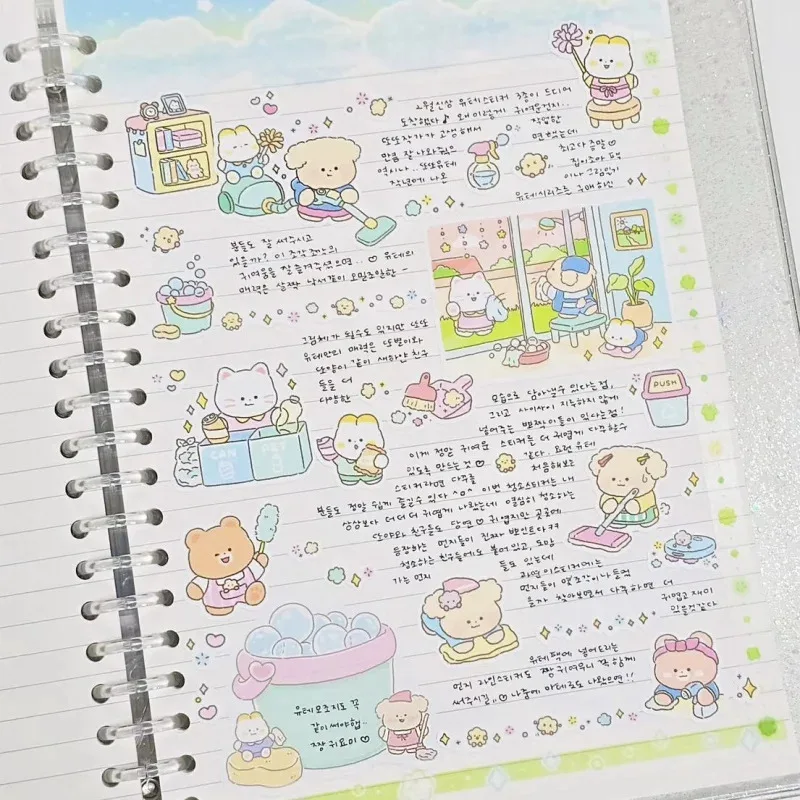 2월신상 유테스티커 3종이 드디어
도착했다♪ 왜이렇게 귀여운건지..
또또작가가 고생해서 작업한
만큼 잘나와주은 면했는데
역시나.. 또또유테 최고다 증말♡
작년에 나온 집이조아 팩
이나 그림일기
유테시리즈를 구매하신
분들도 잘 써주시고
있을까? 이 조각조각의
귀여움을 잘 즐겨주셨으면..♡ 유테의
매력은 살짝 낙서같이 오밀조밀한~
그림체가 될수도 있지만 또또
유테만의 매력은 또뱜이와
또양이 같이 새하얀 친구
들을 더
다양한
모습으로 담아낼수 있다는점,
그리고 사이사이 지루하지 않게
넣어주는 뽀짝이들이 있다는점!
이게 정말 귀여운 스티커를 더 귀엽게 다꾸할수
있도록 만드는 것♡ 같다. 요런 유테
스티커라면 다꾸를 처음해보는
분들도 정말 쉽게 즐길수 있다 ^o^ 이번 청소스티커는 내
상상보다 더더더 귀엽게 나왔는데 열심히 청소하는
단야와 친구들도 당연♡ 귀엽지만 곳곳에
등장하는 먼지들이 진짜 뽀인트다ㅋㅋ
청소하는 친구들에도 붙어 있고, 도망
가는 먼지 들도 있는데
과연 이스티커에는
먼지들이 몇조각이나 들었
을까 찾아보면서 다꾸하면 더
귀엽고 재미
있을것같다
유테팩에 넣어드리는
먼지 라인스티커도 짱귀여우니 꼭 함께
써주시길..♡ 나중에 마테로도 나왔으면!!
유테모조지도 꼭
같이 써야햅..
짱 귀요미♡
CAN
PET
PUSH